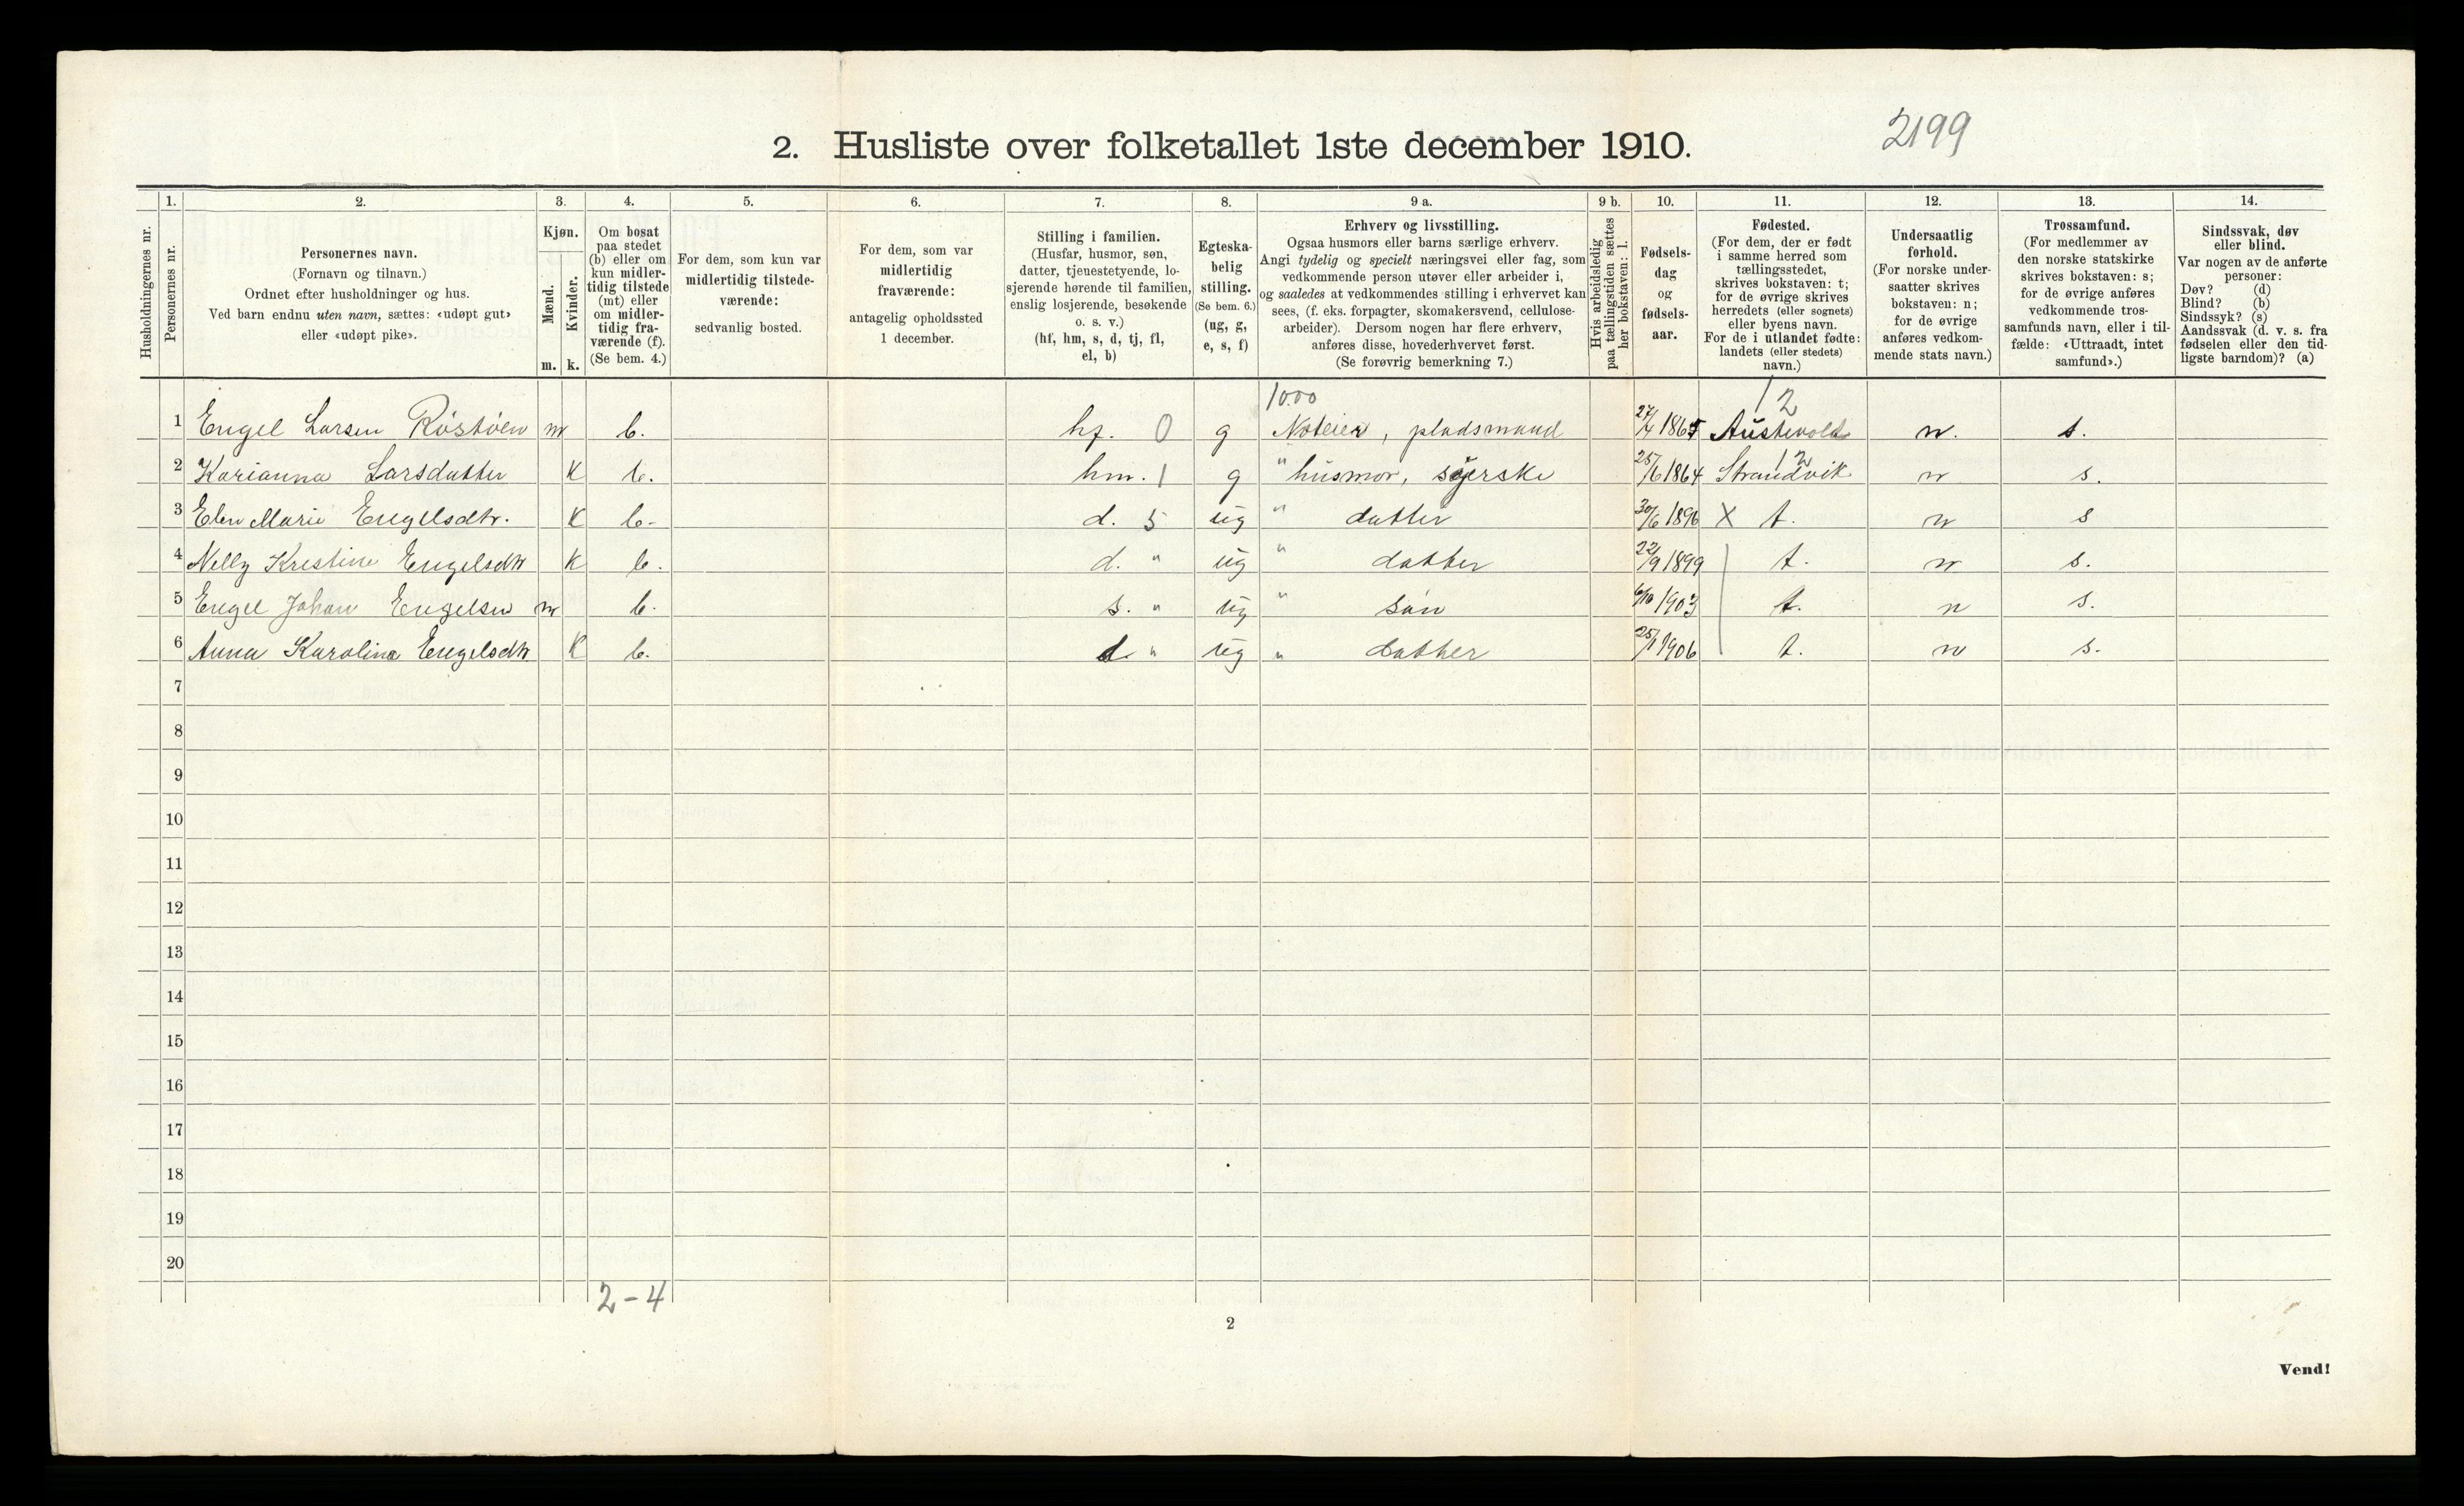 2199
2. Husliste over folketallet 1ste december 1910.
Husholdningernes nr.
1. Personernes nr.
2. Personernes navn.
(Fornavn og tilnavn.)
Ordnet efter husholdninger og hus.
Ved barn endnu uten navn, sættes: «udøpt gut»
eller «udøpt pike».
3. Kjøn.
Mænd. m.
Kvinder. k.
4. Om bosat
paa stedet
(b) eller om
kun midler-
tidig tilstede
(mt) eller
om midler-
tidig fra-
værende (f).
(Se bem. 4.)
5. For dem, som kun var
midlertidig tilstede-
værende:
sedvanlig bosted.
6. For dem, som var
midlertidig
fraværende:
antagelig opholdssted
1 december.
7. Stilling i familien.
(Husfar, husmor, søn,
datter, tjenestetyende, lo-
sjerende hørende til familien,
enslig losjerende, besøkende
o. s. v.)
(hf, hm, s, d, tj, fl,
el, b)
8. Egteska-
belig
stilling.
(Se bem. 6.)
(ug, g,
e, s, f)
9 a. Erhverv og livsstilling.
Ogsaa husmors eller barns særlige erhverv.
Angi tydelig og specielt næringsvei eller fag, som
vedkommende person utøver eller arbeider i,
og saaledes at vedkommendes stilling i erhvervet kan
sees, (f. eks. forpagter, skomakersvend, cellulose-
arbeider). Dersom nogen har flere erhverv,
anføres disse, hovederhvervet først.
(Se forøvrig bemerkning 7.)
9 b. Hvis arbeidsledig
paa tællingstiden sættes
her bokstaven: l.
10. Fødsels-
dag
og
fødsels-
aar.
11. Fødested.
(For dem, der er født
i samme herred som
tællingsstedet,
skrives bokstaven: t;
for de øvrige skrives
herredets (eller sognets)
eller byens navn.
For de i utlandet fødte:
landets (eller stedets)
navn.)
12. Undersaatlig
forhold.
(For norske under-
saatter skrives
bokstaven: n;
for de øvrige
anføres vedkom-
mende stats navn.)
13. Trossamfund.
(For medlemmer av
den norske statskirke
skrives bokstaven: s;
for de øvrige anføres
vedkommende tros-
samfunds navn, eller i til-
fælde: «Uttraadt, intet
samfund».)
14. Sindssvak, døv
eller blind.
Var nogen av de anførte
personer:
Døv? (d)
Blind? (b)
Sindssyk? (s)
Aandssvak (d. v. s. fra
fødselen eller den tid-
ligste barndom)? (a)
1000 12
1 Engel Larsen Röstöen m b. hf. 0 g Noteier, pladsmand 27/4 1865 Austevold n. s.
12
2 Karianna Larsdatter K b. hm. 1 g " husmor, syerske 25/6 1864 Strandvik n s.
3 Elen Marie Engelsdtr. K b. d. 5 ug " datter 30/6 1896 X t. n s
4 Nelly Kristine Engelsdtr K b. d. " ug " datter 22/9 1899 t. n s.
5 Engel Johan Engelsen m b. s. " ug " sön 6/10 1903 t. n s.
6 Anna Karolina Engelsdtr K b. d. " ug " datter 25/1 1906 t. n s.
7
8
9
10
11
12
13
14
15
16
17
18
19
20
2-4
2
Vend!